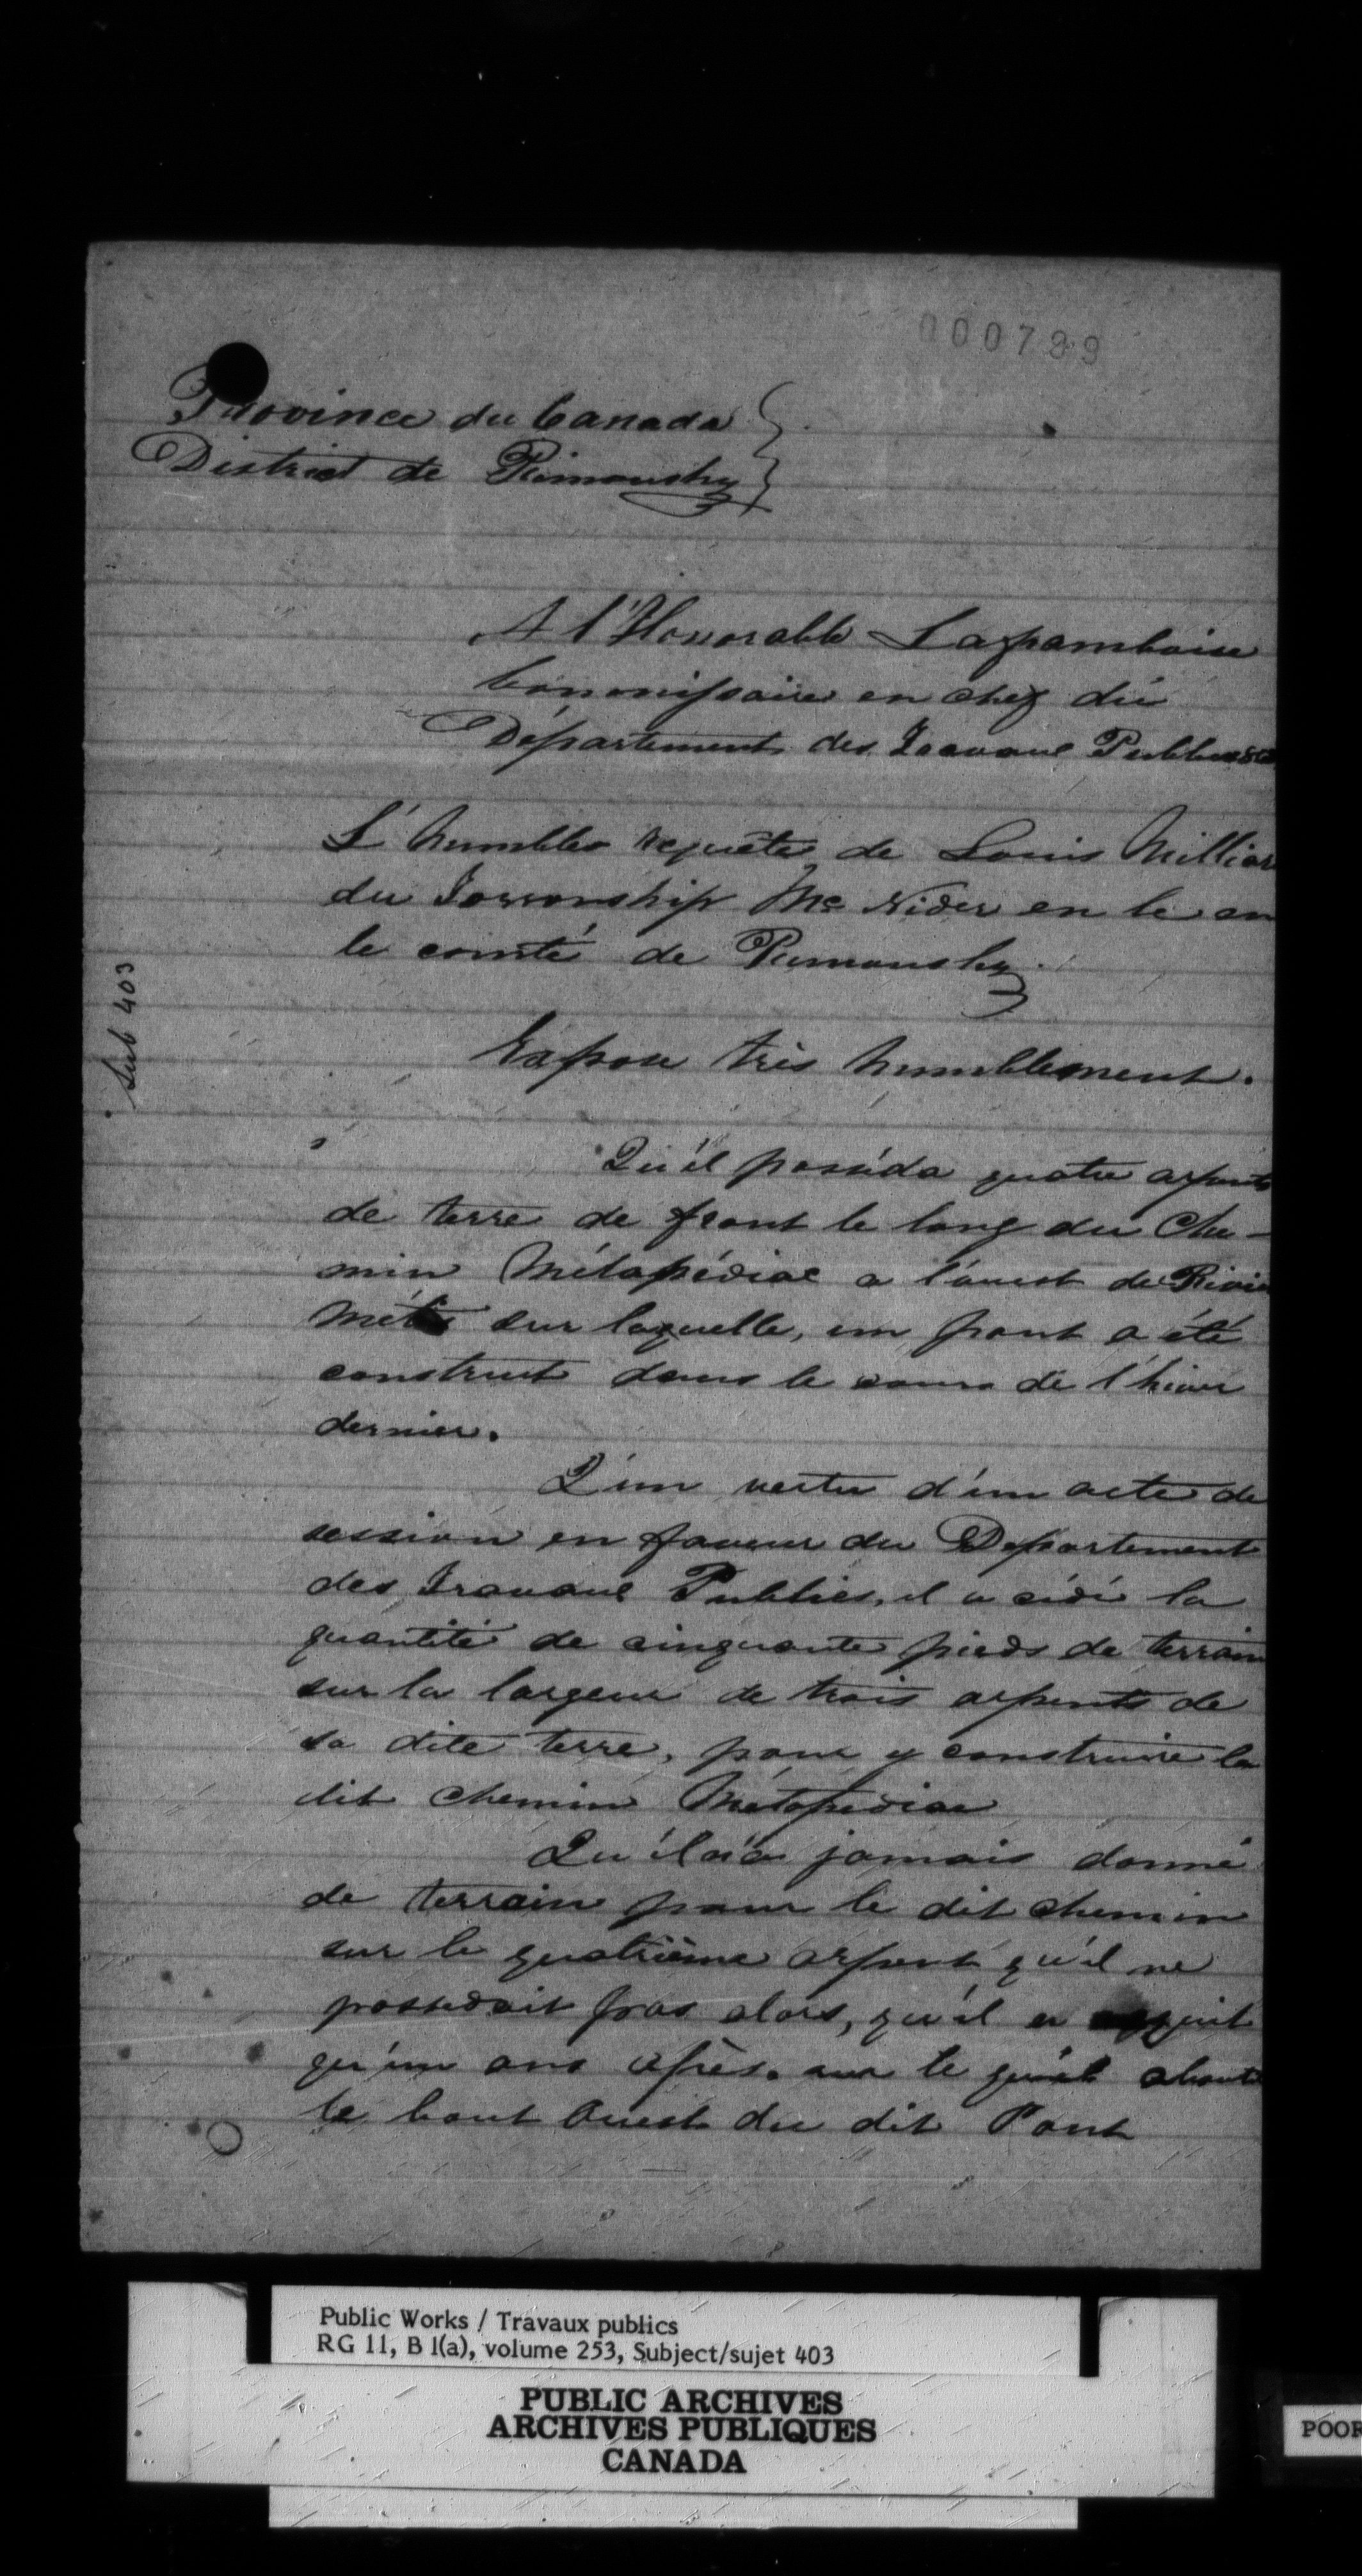 000799
Province du Canada
District de Rimousky
A l'Honorable Laframboise
Commissaire en chef du
Département des Travaux Publics &c
L'humble requête de Louis Millier
du Townonship Mc Nider en le en
le comté de Rimousky.
Expose très humblement.
Sub 403
Qu'il posséda quatre arpents
de terre de front le long du Che-
min Métapédiac a l'ouest de Riviè
Métis sur laquelle, un pont a été
construit dans le cours de l'hiver
dernier.
Q'un vertu d'un acte de
cession en faveur du Departement
des Travaux Publics, il a cédé la
quantité de cinquante pieds de terrain
sur la largeur de trois arpents de
sa dite terre, pour y construire le
dit chemin Métapediac
Qu'il n'a jamais donné
de terrain pour le dit chemin
sur le quatrième arpent qu'il ne
possedait pas alors, qu'il en acquit
qu'un ans après. sur le quel aboute
le bout Ouest du dit Pont
Public Works / Travaux publics
RG 11, B 1(a), volume 253, Subject/sujet 403
PUBLIC ARCHIVES
ARCHIVES PUBLIQUES
CANADA
POOR